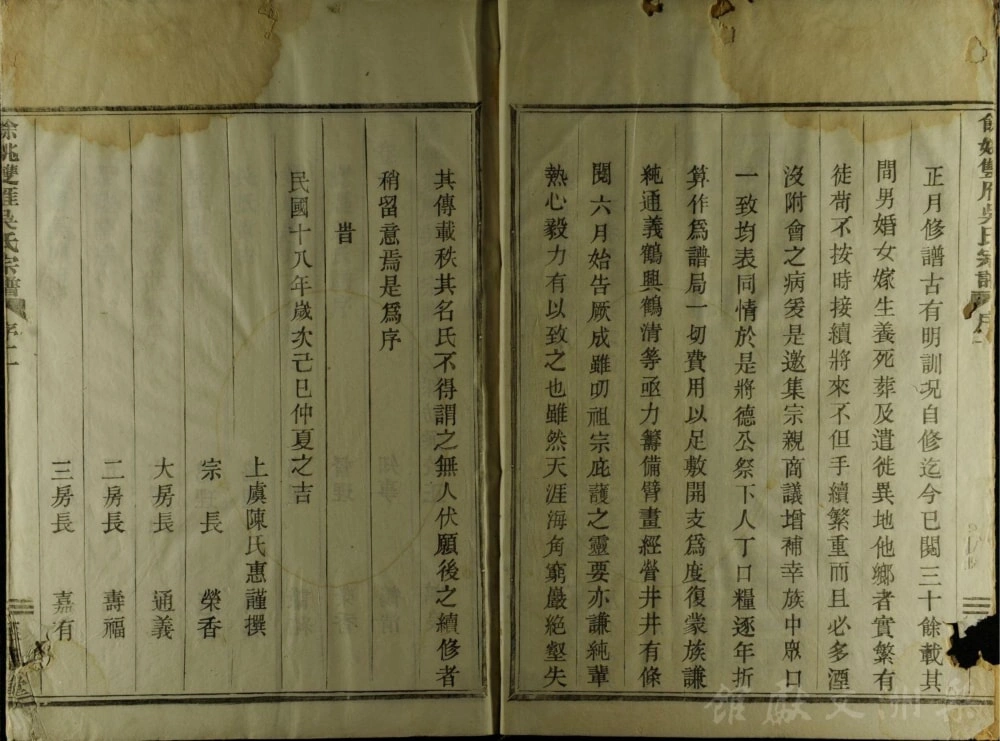 餘姚雙雁吳氏宗譜
正月修譜古有明訓况自修迄今已閱三十餘載其
間男婚女嫁生養死葬及遣徙異地他鄉者實繁有
徒苟不按時接續將來不但手續繁重而且必多湮
沒附會之病爰是邀集宗親商議增補幸族中眾口
一致均表同情於是將德公祭下人丁口糧逐年折
算作爲譜局一切費用以足敷開支爲度復蒙族謙
純通義鶴興鶴清等亟力籌備臂畫經營井井有條
閱六月始告厥成雖叨祖宗庇護之靈要亦謙純輩
熱心毅力有以致之也雖然天涯海角窮巖絶壑失
其傳載秩其名氏不得謂之無人伏願後之續修者
稍留意焉是爲序
旹
民國十八年歲次己巳仲夏之吉
上虞陳氏惠謹撰
宗長 榮香
大房長 通義
二房長 壽福
三房長 嘉有
餘姚雙雁吳氏宗譜 序二
梨洲文獻館